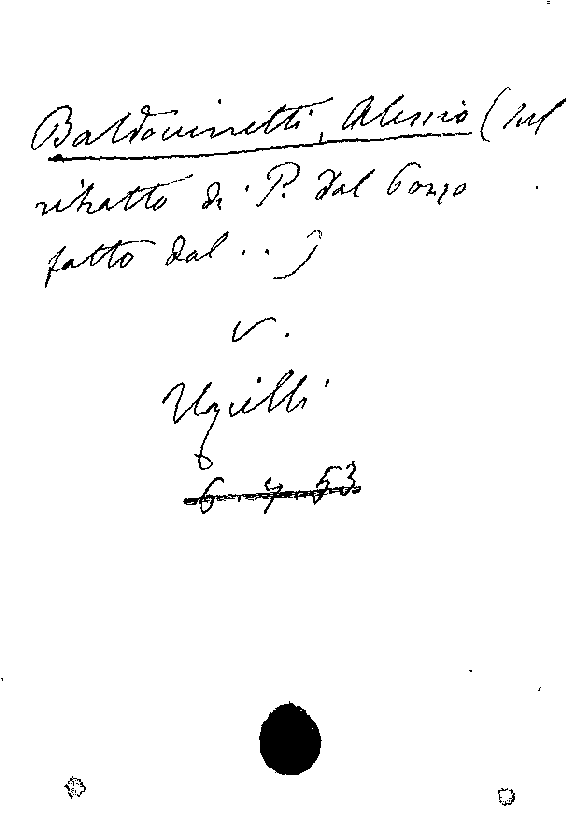 Baldovinetti, Alessio (sul
ritratto di P. dal Pozzo
fatto dal . . )
v.
Ugielli
6. 7. 53